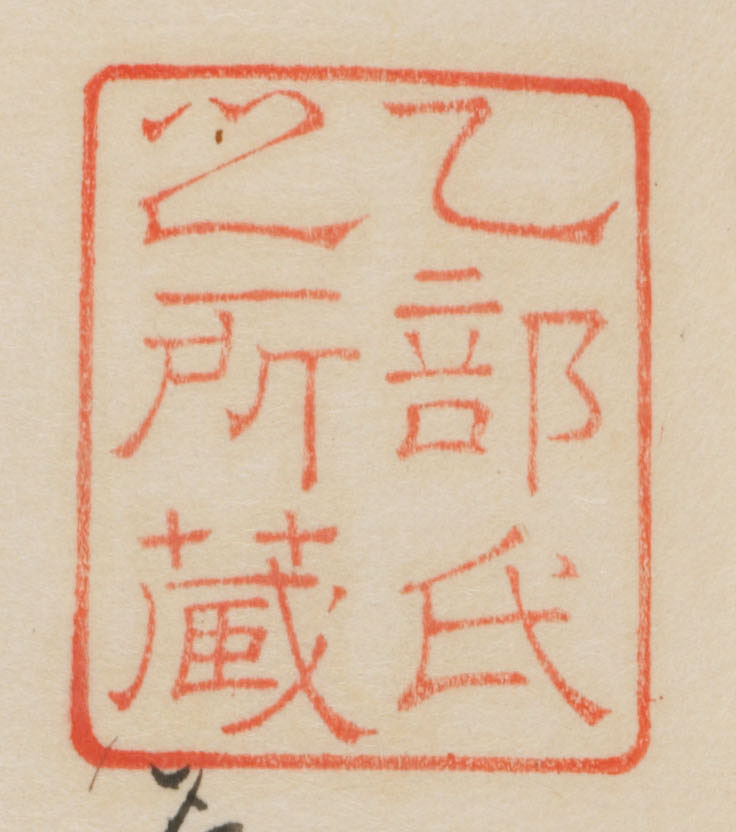 乙部氏
之所蔵